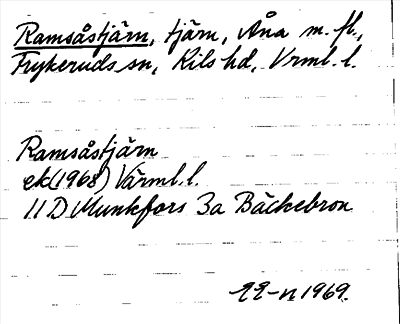 Ramsåstjärn, tjärn, Åna m. fl.,
Frykeruds sn, Kils hd, Vrml. l.
Ramsåstjärn
ek(1968) Värml. l.
11 D Munkfors 3a Bäckebron
1969.